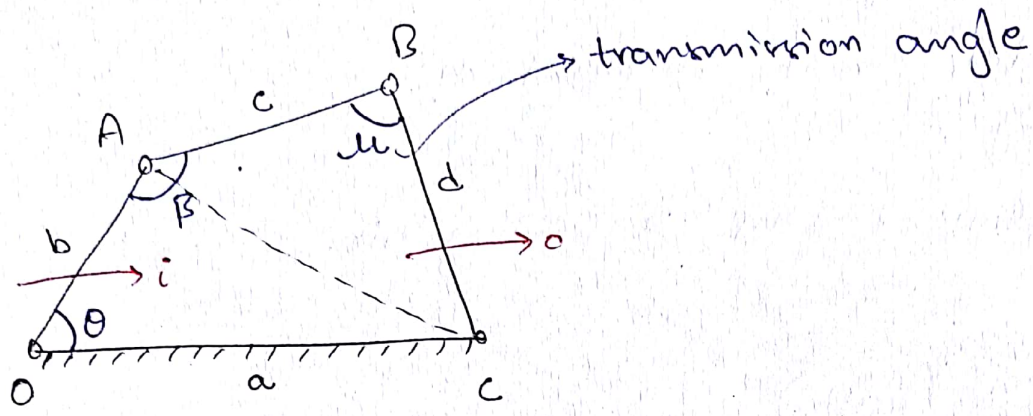 B
transmission angle
c
A
μ
d
β
b
o
i
θ
O
a
C